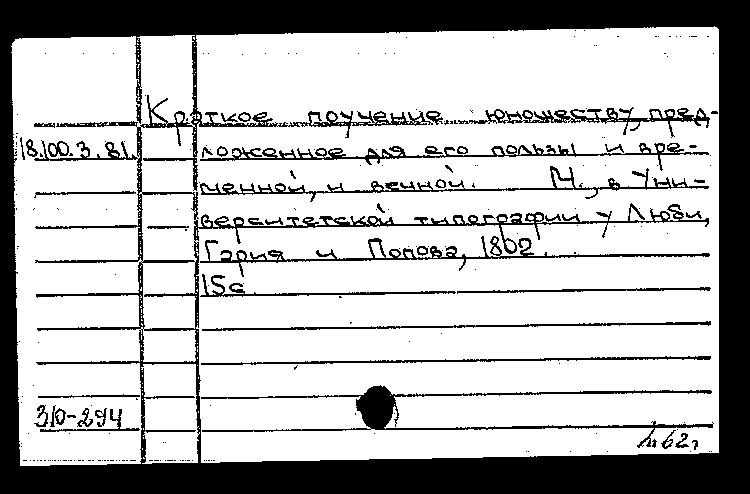 Краткое поучение юношеству, пред-
18.100.3.81. ложенное для его пользы и вре-
менной, и вечной. М., в Уни-
верситетской типографии у Люби,
Гария и Попова, 1802.
15с.
310-294
62г